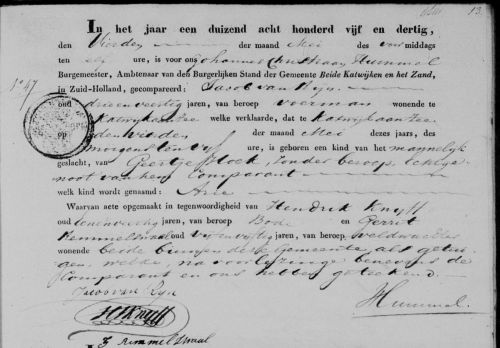 13.
In het jaar een duizend acht honderd vijf en dertig,
den Vierden der maand Mei des voormiddags
ten elf ure, is voor ons Johannes Christiaan Hummel
Burgemeester, Ambtenaar van den Burgerlijken Stand der Gemeente Beide Katwijken en het Zand,
in Zuid-Holland, gecompareerd: Jacob van Rijn
N° 47
oud drie en veertig jaren, van beroep voerman wonende te
Katwijk aan Zee welke verklaarde, dat te Katwijk aan Zee
op den Vierden der maand Mei dezes jaars, des
morgens ten vijf ure, is geboren een kind van het mannelijk
geslacht, van Geertje Hoek, zonder beroep, echtge
noot van hem Comparant
welk kind wordt genaamd: Arie
Waarvan acte opgemaakt in tegenwoordigheid van Hendrik Knijff
oud jaren, van beroep Bode en Gerrit
Remmelzwaal oud vijf en vijftig jaren, van beroep veldwachter
wonende beide binnen deze gemeente, als getui-
gen, welke, na voorlezing benevens de
Comparant en ons hebben geteekend.
J van Rijn
Hummel.
H Knijff
G Remmelzwaal